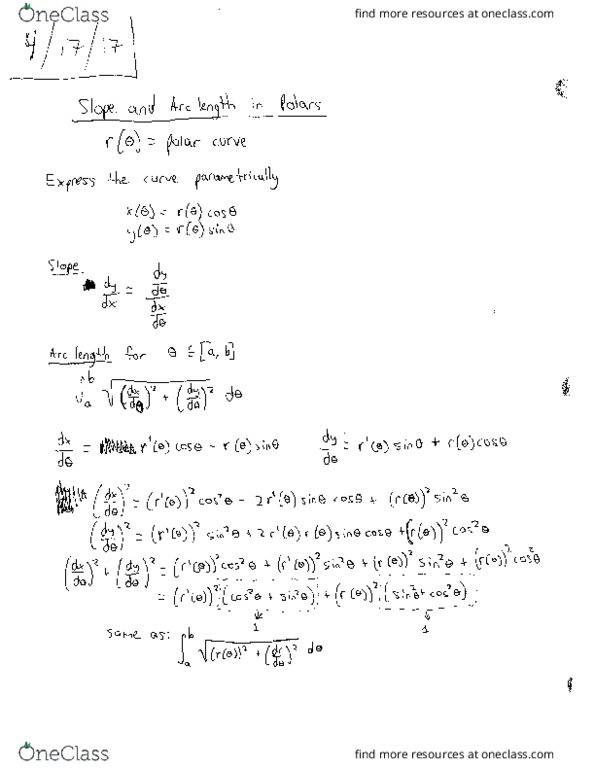 OneClass
find more resources at oneclass.com
4/17/17
Slope and Arc length in Polars
r(θ) = polar curve
Express the curve parametrically
x(θ) = r(θ) cosθ
y(θ) = r(θ) sinθ
Slope
dy/dx = (dy/dθ)/(dx/dθ)
Arc length for θ ∈ [a, b]
∫_a^b √((dx/dθ)² + (dy/dθ)²) dθ
dx/dθ = r'(θ) cosθ - r(θ) sinθ dy/dθ = r'(θ) sinθ + r(θ) cosθ
(dx/dθ)² = (r'(θ))² cos²θ - 2r'(θ) sinθ cosθ + (r(θ))² sin²θ
(dy/dθ)² = (r'(θ))² sin²θ + 2r'(θ) r(θ) sinθ cosθ + (r(θ))² cos²θ
(dx/dθ)² + (dy/dθ)² = (r'(θ))² cos²θ + (r'(θ))² sin²θ + (r(θ))² sin²θ + (r(θ))² cos²θ
= (r'(θ))² (cos²θ + sin²θ) + (r(θ))² (sin²θ + cos²θ)
1 1
same as: ∫_a^b √((r(θ))² + (dr/dθ)²) dθ
OneClass
find more resources at oneclass.com